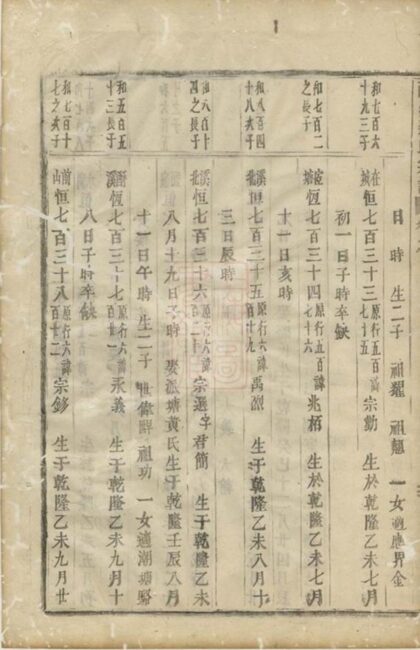 日時 生二子 祖耀 祖魁 一女適應界金
和七百六
十九三子
在城恒七百三十三原行五百七十五諱宗勤 生於乾隆乙未七月
初一日子時卒缺
和七百二
之長子
塘恒七百三十四原行五百七十六諱兆栢 生於乾隆乙未七月
十一日亥時
和八百四
十八次子
溪北恒七百三十五原行六百十九諱禹源 生于乾隆乙未八月十
三日辰時
和八百十
四之長子
溪北恒七百三十六原行六百二十諱宗選字君簡 生于乾隆乙未
八月十九日子時 娶派塘黄氏生于乾隆壬辰八月
十一日午時 生二子 世偉 祖功 一女適湖塘
和五百五
十三長子
溪恒七百三十七原行六百一諱永義 生于乾隆乙未九月十
八日子時卒缺
和七百十
七之次子
前山恒七百三十八原行六百廿二諱宗鈔 生于乾隆乙未九月廿